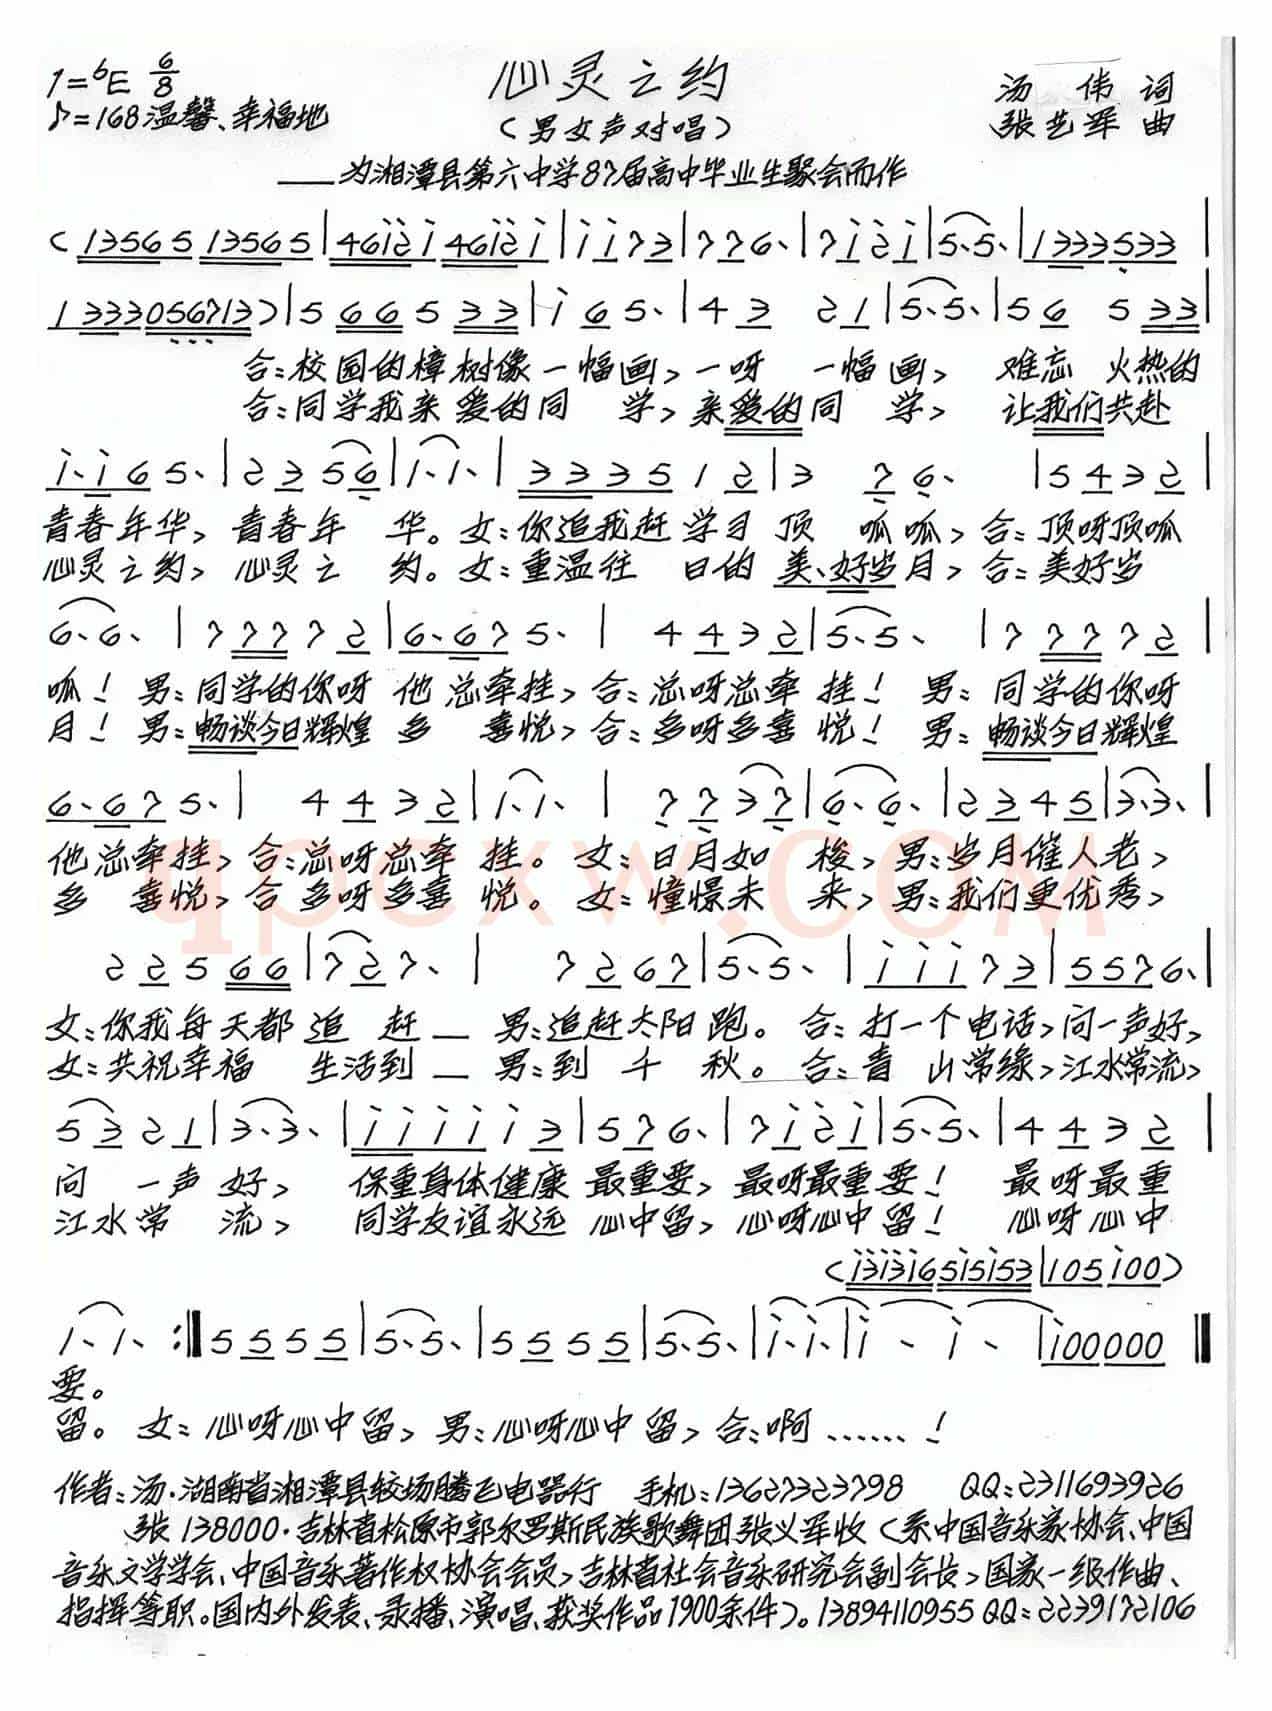 1=♭E 6/8 心灵之约 汤 伟 词
♪=168 温馨、幸福地 (男女声对唱) 张艺军 曲
——为湘潭县第六中学87届高中毕业生聚会而作
(13565 13565|46i2i 46i2i|i i 7 3|7 7 6.|7 i 2 i|5. 5.|1 333 533|
1 333 056713)|5 66 5 33|i 6 5.|4 3 2 1|5. 5.|5 6 5 33|
合:校园的樟树像一幅画,一呀 一幅画, 难忘 火热的
合:同学我亲爱的同 学,亲爱的同 学, 让我们共赴
i. i 6 5.|2 3 5 6|1. 1.|3 3 3 5 1 2|3 7 6.|5 4 3 2|
青春年华,青春年 华。女:你追我赶学习顶 呱呱,合:顶呀顶呱
心灵之约,心灵之 约。女:重温往 日的 美、好岁月,合:美好岁
6. 6.|7 7 7 7 2|6. 6 7 5.|4 4 3 2|5. 5.|7 7 7 7 2|
呱!男:同学的你呀 他总牵挂,合:总呀总牵 挂! 男:同学的你呀
月!男:畅谈今日辉煌 多 喜悦,合:多呀多喜 悦! 男:畅谈今日辉煌
6. 6 7 5.|4 4 3 2|1. 1.|7 7 3 7|6. 6.|2 3 4 5|3. 3.|
他总牵挂,合:总呀总牵 挂。女:日月如 梭,男:岁月催人老,
多 喜悦,合 多呀多喜 悦。女:憧憬未 来,男:我们更优秀,
2 2 5 66|7 2 7.|7 2 6 7|5. 5.|i i i 7 3|5 5 7 6.|
女:你我每天都 追 赶 — 男:追赶太阳 跑。合:打一个电话,问一声好,
女:共祝幸福 生活到 — 男:到 千 秋。合:青 山常缘,江水常流,
5 3 2 1|3. 3.|i i i i i 3|5 7 6.|7 i 2 i|5. 5.|4 4 3 2|
问 一声 好, 保重身体健康 最重要,最呀最重要! 最呀最重
江水常 流, 同学友谊永远 心中留,心呀心中留! 心呀心中
(i3i3i6 5i5i53|105 i00)
1. 1. :‖5 5 5 5|5. 5.|5 5 5 5|5. 5.|i. i.|i. i.|i00000‖
要。
留。女:心呀心中留,男:心呀心中 留,合:啊……!
作者:汤·湖南省湘潭县较场腾飞电器行 手机:13627323798 QQ:2311693926
张 138000·吉林省松原市郭尔罗斯民族歌舞团张义军收(系中国音乐家协会、中国
音乐文学学会、中国音乐著作权协会会员,吉林省社会音乐研究会副会长,国家一级作曲、
指挥等职。国内外发表、录播、演唱、获奖作品1900余件)。13894110955 QQ:2239172106
qpcxw.COM